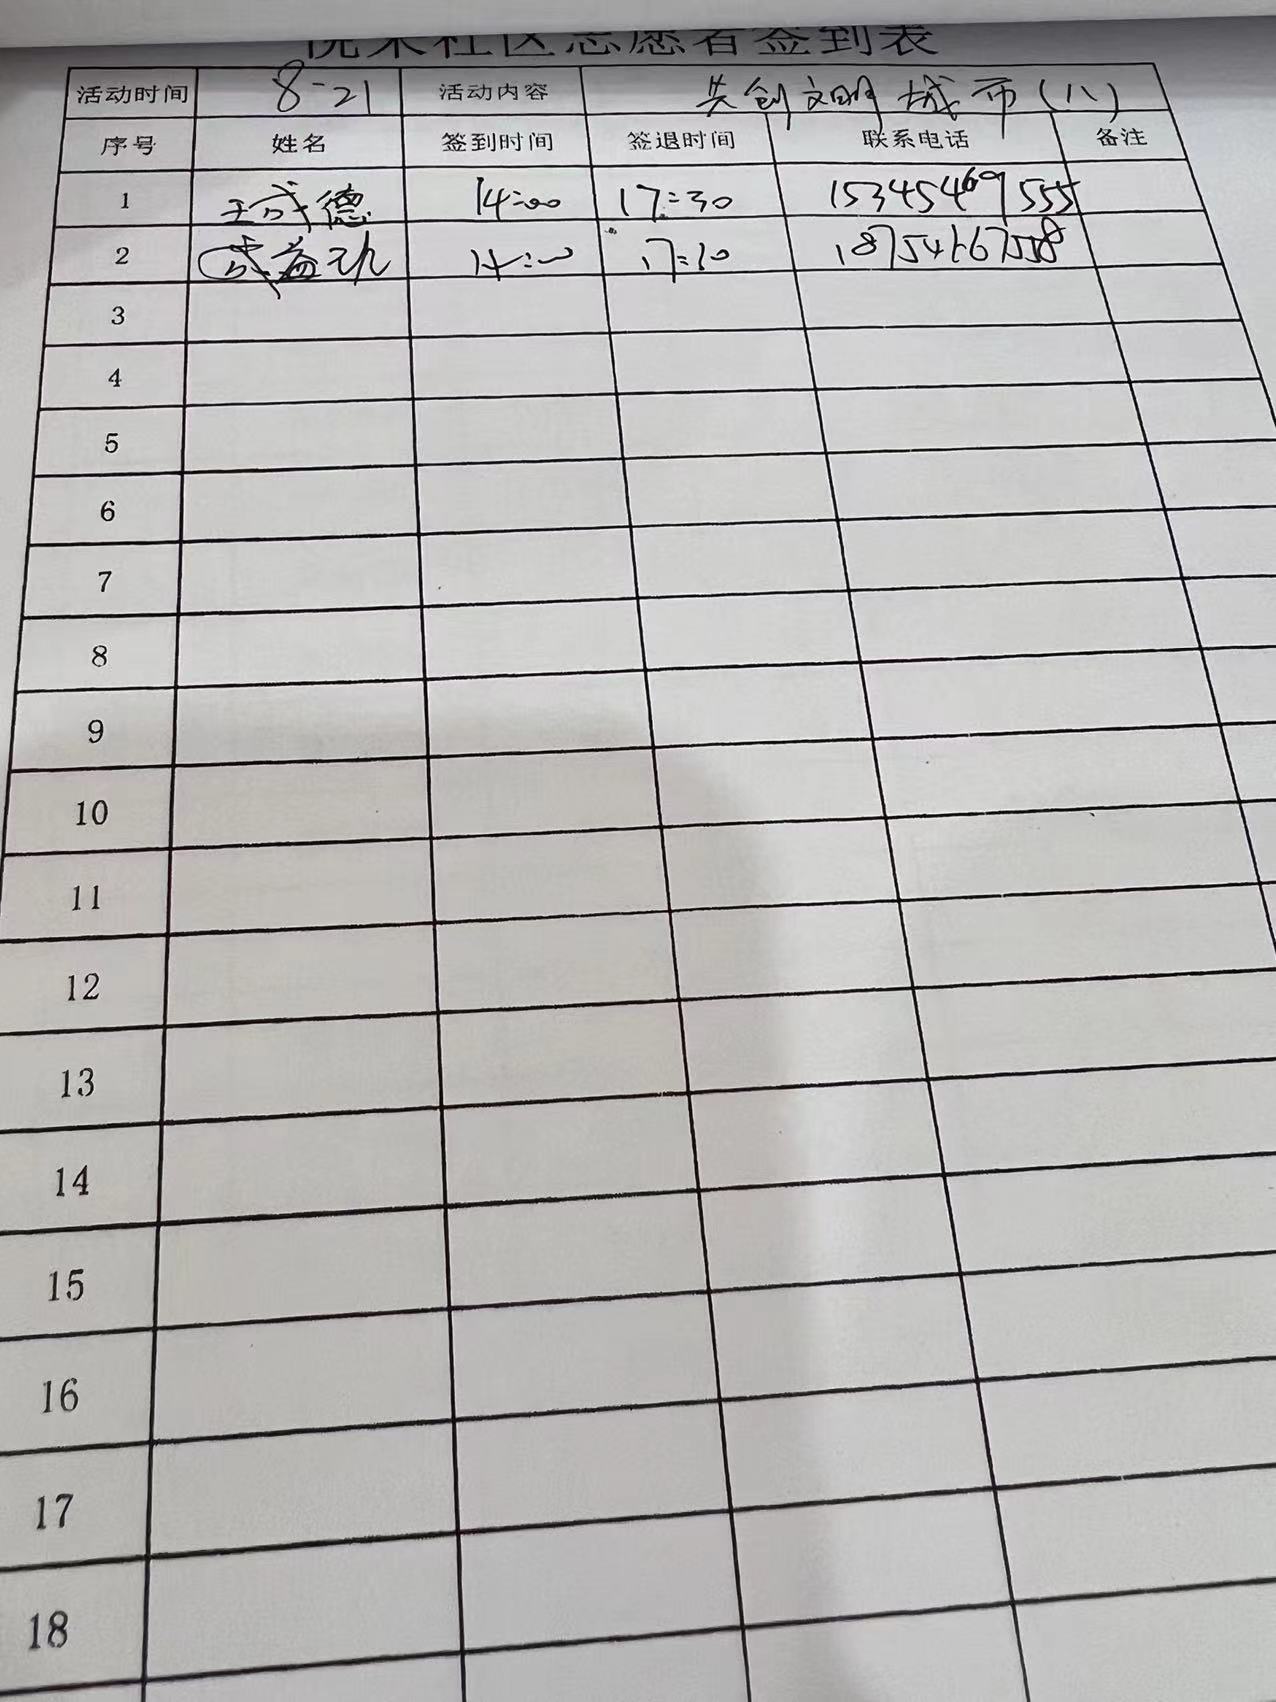 社区志愿者签到表
活动时间 8-21 活动内容 共创文明城市(八)
序号 姓名 签到时间 签退时间 联系电话 备注
1 王成德 14:00 17:30 15345469555
2 14:00 17:30
3
4
5
6
7
8
9
10
11
12
13
14
15
16
17
18